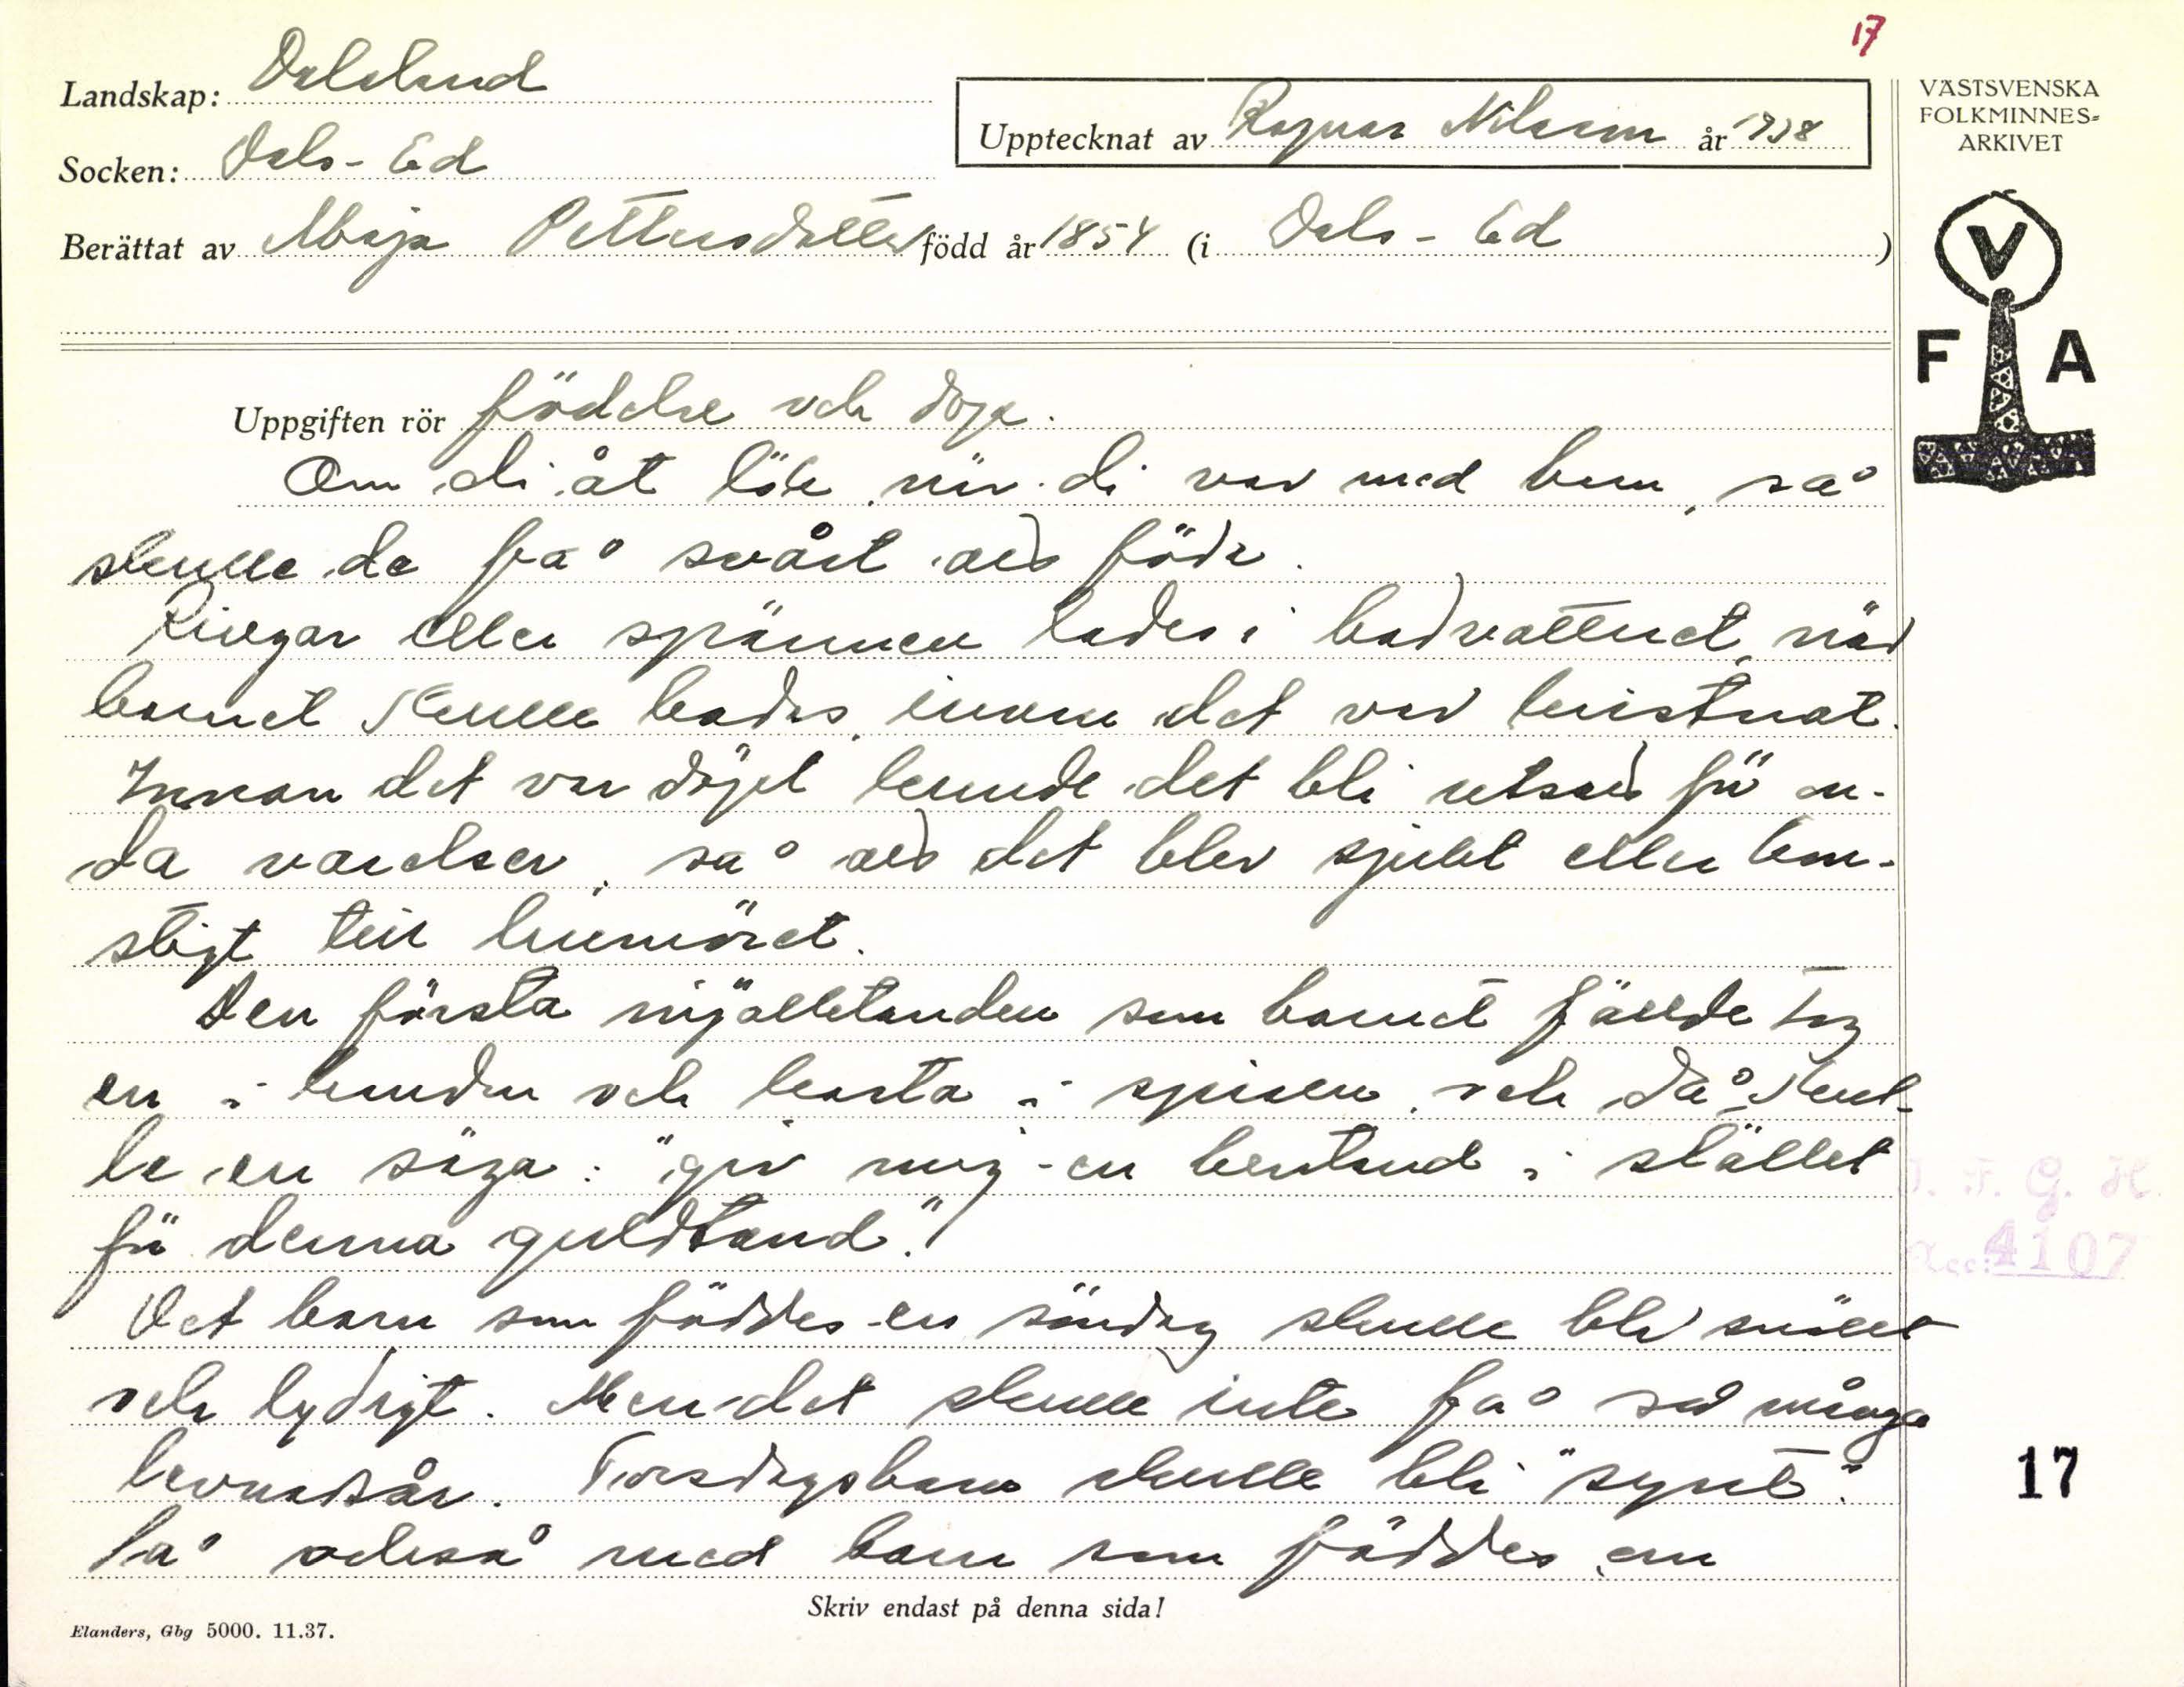 17
Landskap: Dalsland
Upptecknat av Ragnar Nilsson år 1938
VÄSTSVENSKA
FOLKMINNES=
ARKIVET
Socken: Dals-Ed
Berättat av Maja Pettersdotter född år 1854 (i Dals-Ed )
V
F A
Uppgiften rör födelse och dop.
Om di åt lök när di var med barn, så
skulle de få svårt att föda.
Ringar eller spännen lades i badvattnet, när
barnet skulle badas innan det var kristnat.
Innan det var döpt kunde det bli utsatt för on-
da varelser, så att det blev sjukt eller kon-
stigt till humöret.
Den första mjölktanden som barnet fällde tog
en i handen och kasta i spisen, och då skul-
le en säga: "giv mig en bentand i stället
för denna guldtand."
Det barn som föddes en söndag skulle bli snällt
och lydigt. Men det skulle inte få så många
levnadsår. Torsdagsbarn skulle bli "synt".
Så också med barn som föddes en
J. F. G. H.
Acc: 4107
17
Skriv endast på denna sida!
Elanders, Gbg 5000. 11.37.